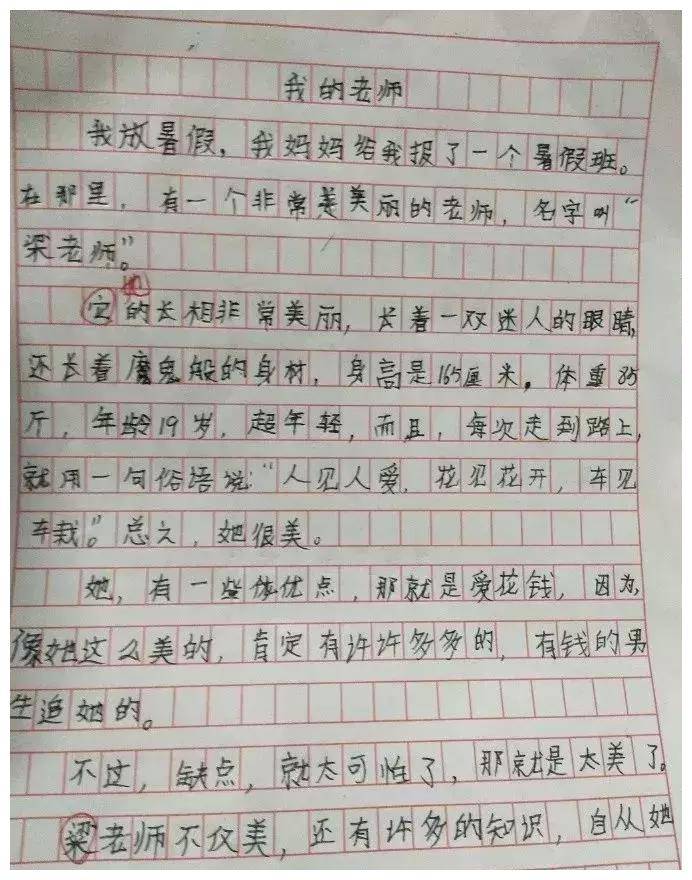 我的老师
我放暑假，我妈妈给我报了一个暑假班。
在那里，有一个非常美丽的老师，名字叫“
梁老师”。
她
它的长相非常美丽，长着一双迷人的眼睛，
还长着魔鬼般的身材，身高是165厘米，体重85
斤，年龄19岁，超年轻，而且，每次走到路上，
就用一句俗语说：“人见人爱，花见花开，车见
车栽。”总之，她很美。
她，有一些优点，那就是爱花钱，因为，
像她这么美的，肯定有许许多多的，有钱的男
生追她的。
不过，缺点，就太可惜了，那就是太美了。
梁老师不仅美，还有许多的知识，自从她